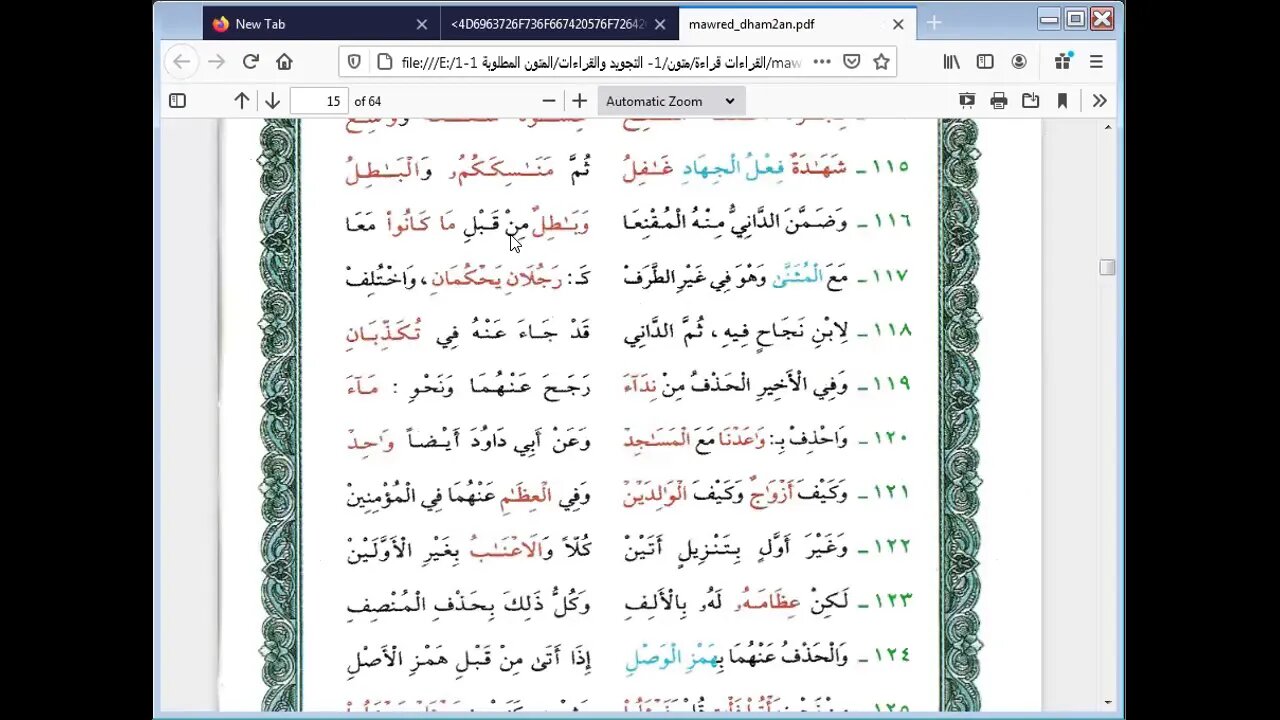 New Tab
<4D6963726F736F667420576F72642
mawred_dham2an.pdf
file:///E:/1-1 القراءات قراءة/متون/1- التجويد والقراءات/المتون المطلوبة/maw
15 of 64
Automatic Zoom
١١٥ـ شَهَـٰدَةٌ فِعْلُ الْجِهَادِ غَـٰفِلُ ثُمَّ مَنَـٰسِكَكُمُۥ وَالْبَـٰطِلُ
١١٦ـ وَضَمَّنَ الدَّانِيُّ مِنْهُ الْمُقْنِعَا وَبَـٰطِلٌ مِنْ قَبْلِ مَا كَانُوا۟ مَعَا
١١٧ـ مَعَ الْمُثَنَّىٰ وَهْوَ فِي غَيْرِ الطَّرَفْ كَـ: رَجُلَانِ يَحْكُمَانِ، وَاخْتُلِفْ
١١٨ـ لِابْنِ نَجَاحٍ فِيهِ، ثُمَّ الدَّانِي قَدْ جَاءَ عَنْهُ فِي تُكَذِّبَانِ
١١٩ـ وَفِي الْأَخِيرِ الْحَذْفُ مِنْ نِدَآءَ رَجَحَ عَنْهُمَا وَنَحْوِ: مَآءَ
١٢٠ـ وَاحْذِفْ بِـ: وَٰعَدْنَا مَعَ الْمَسَـٰجِدْ وَعَنْ أَبِي دَاوُدَ أَيْضاً وَٰحِدْ
١٢١ـ وَكَيْفَ أَزْوَٰجٌ وَكَيْفَ الْوَٰلِدَيْنْ وَفِي الْعِظَـٰمِ عَنْهُمَا فِي الْمُؤْمِنِينْ
١٢٢ـ وَغَيْرَ أَوَّلٍ بِتَنْزِيلٍ أَتَيْنْ كُلّاً وَالَاعْنَـٰبُ بِغَيْرِ الْأَوَّلَيْنْ
١٢٣ـ لَكِنْ عِظَامَهُۥ لَهُۥ بِالْأَلِفِ وَكُلُّ ذَلِكَ بِحَذْفِ الْمُنْصِفِ
١٢٤ـ وَالْحَذْفُ عَنْهُمَا بِهَمْزِ الْوَصْلِ إِذَا أَتَىٰ مِنْ قَبْلِ هَمْزِ الْأَصْلِ